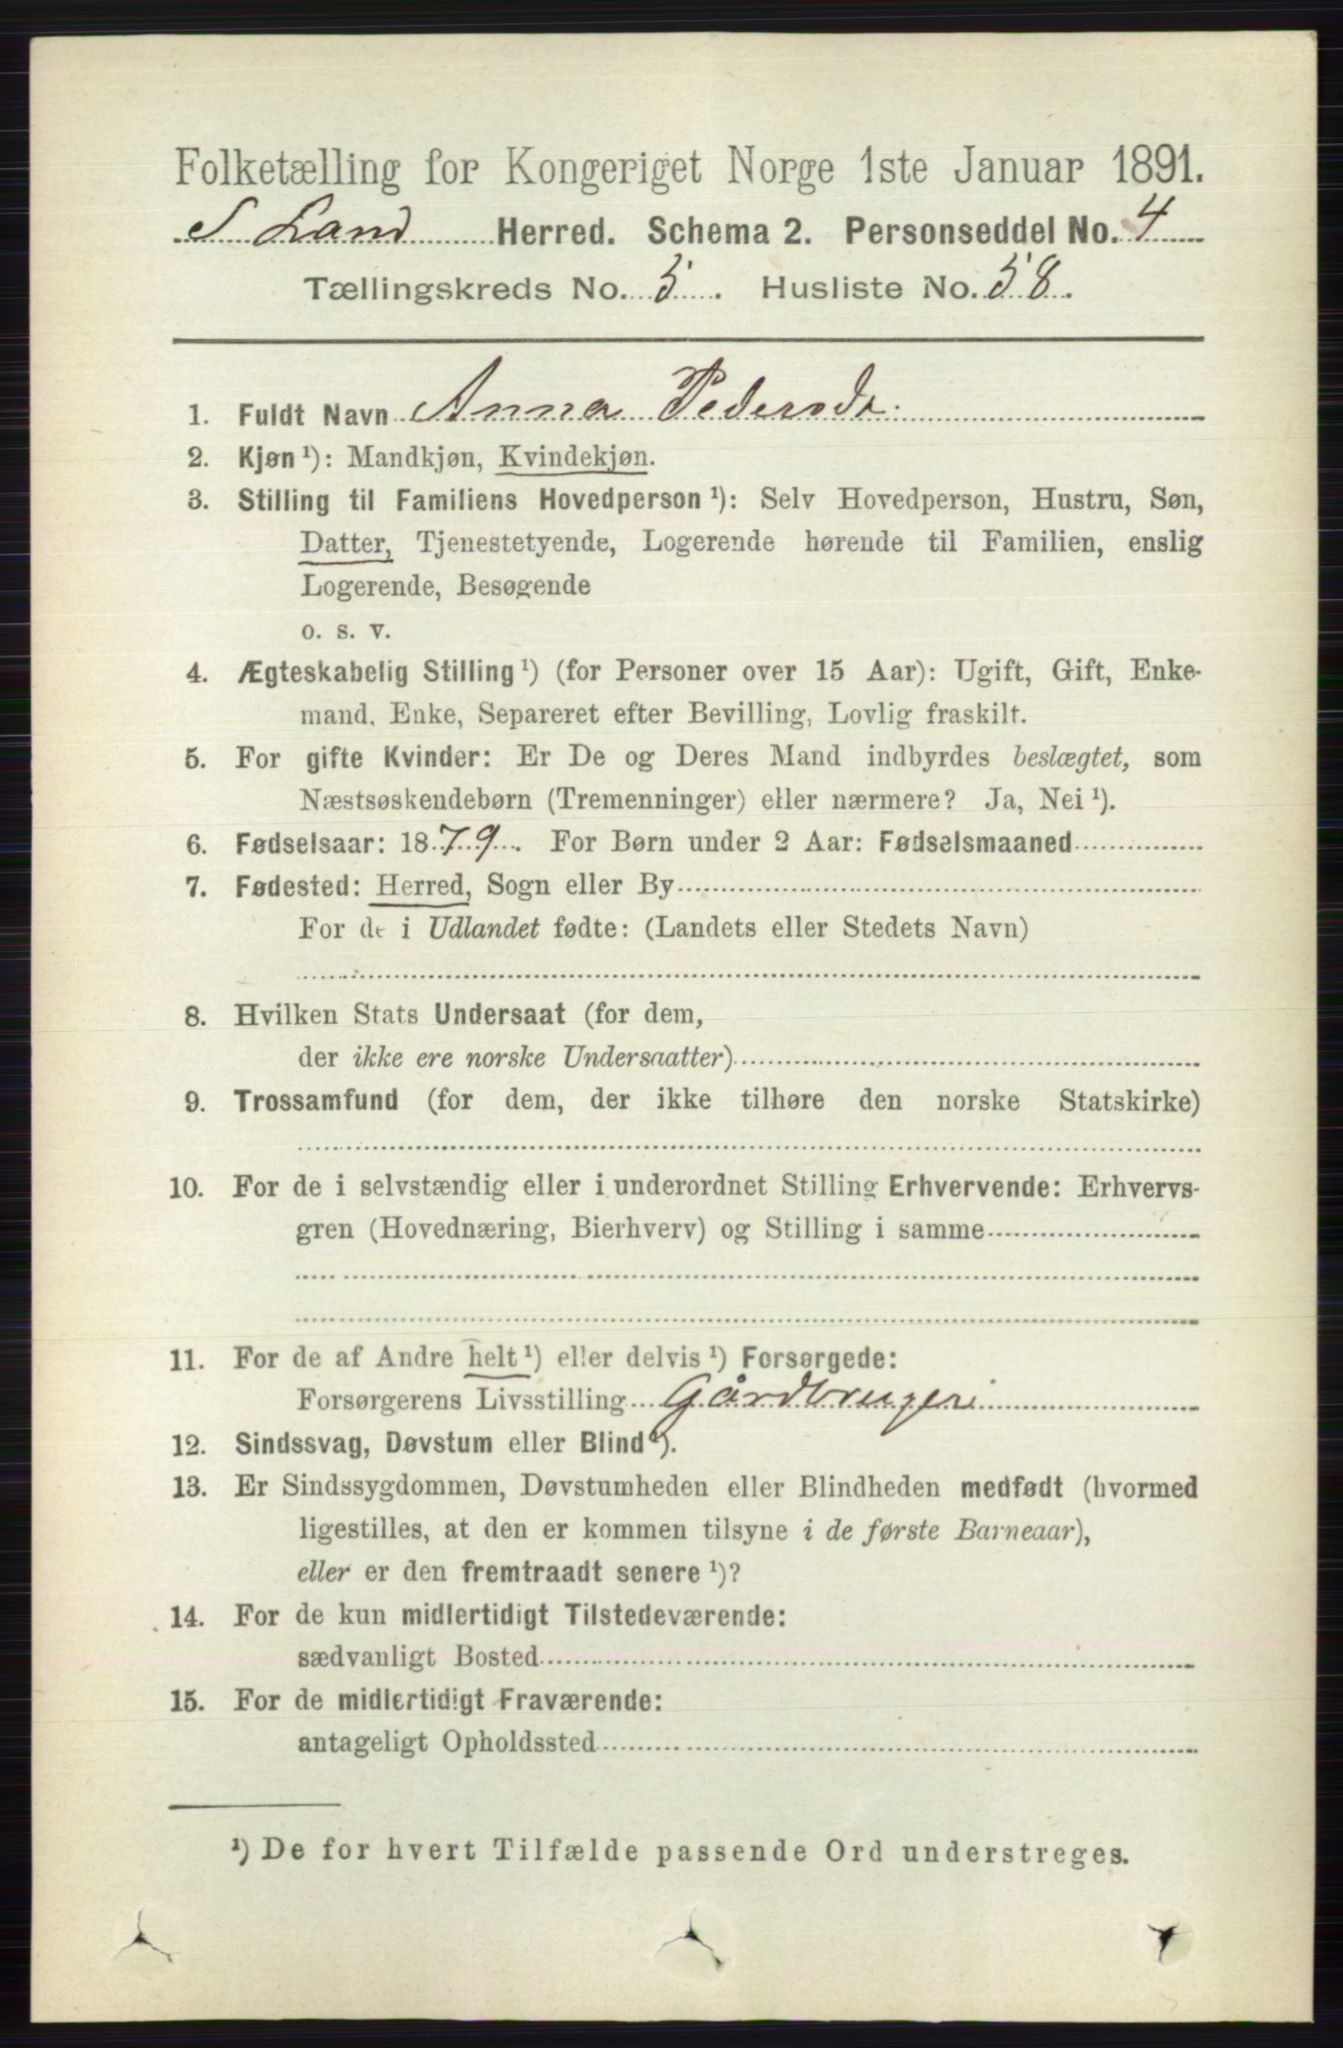 Folketælling for Kongeriget Norge 1ste Januar 1891.
S Land Herred. Schema 2. Personseddel No. 4
Tællingskreds No. 5. Husliste No. 58.
1. Fuldt Navn Anna Pedersdr.
2. Kjøn ¹): Mandkjøn, Kvindekjøn.
3. Stilling til Familiens Hovedperson ¹): Selv Hovedperson, Hustru, Søn,
Datter, Tjenestetyende, Logerende hørende til Familien, enslig
Logerende, Besøgende
o. s. v.
4. Ægteskabelig Stilling ¹) (for Personer over 15 Aar): Ugift, Gift, Enke-
mand, Enke, Separeret efter Bevilling, Lovlig fraskilt.
5. For gifte Kvinder: Er De og Deres Mand indbyrdes beslægtet, som
Næstsøskendebørn (Tremenninger) eller nærmere? Ja, Nei ¹).
6. Fødselsaar: 1879. For Børn under 2 Aar: Fødselsmaaned
7. Fødested: Herred, Sogn eller By
For de i Udlandet fødte: (Landets eller Stedets Navn)
8. Hvilken Stats Undersaat (for dem,
der ikke ere norske Undersaatter)
9. Trossamfund (for dem, der ikke tilhøre den norske Statskirke)
10. For de i selvstændig eller i underordnet Stilling Erhvervende: Erhvervs-
gren (Hovednæring, Bierhverv) og Stilling i samme
11. For de af Andre helt ¹) eller delvis ¹) Forsørgede:
Forsørgerens Livsstilling Gårdbrugeri
12. Sindssvag, Døvstum eller Blind ¹).
13. Er Sindssygdommen, Døvstumheden eller Blindheden medfødt (hvormed
ligestilles, at den er kommen tilsyne i de første Barneaar),
eller er den fremtraadt senere ¹)?
14. For de kun midlertidigt Tilstedeværende:
sædvanligt Bosted
15. For de midlertidigt Fraværende:
antageligt Opholdssted
¹) De for hvert Tilfælde passende Ord understreges.